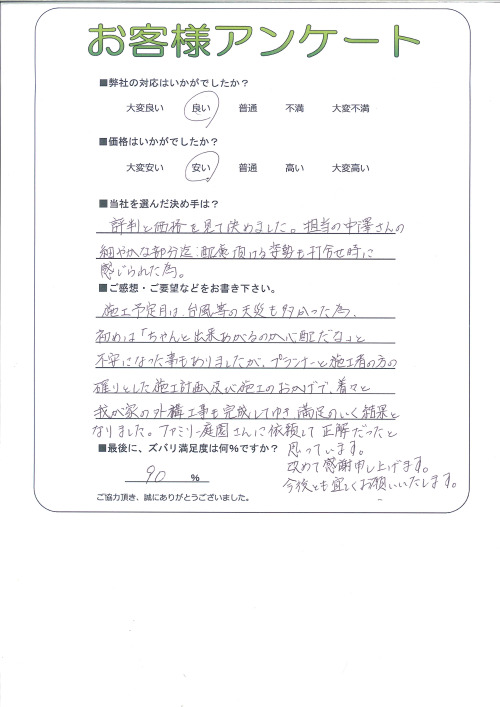 お客様アンケート
■弊社の対応はいかがでしたか？
大変良い 良い 普通 不満 大変不満
■価格はいかがでしたか？
大変安い 安い 普通 高い 大変高い
■当社を選んだ決め手は？
評判と価格を見て決めました。担当の中澤さんの
細やかな部分迄配慮頂ける姿勢も打合せ時に
感じられた為。
■ご感想・ご要望などをお書き下さい。
施工予定月は、台風等の天災も多かった為、
初めは「ちゃんと出来あがるのか心配だな」と
不安になった事もありましたが、プランナーと施工者の方の
確りとした施工計画及び施工のおかげで、着々と
我が家の外構工事も完成してゆき、満足のいく結果と
なりました。ファミリー庭園さんに依頼して正解だったと
思っています。
改めて感謝申し上げます。
今後とも宜しくお願いいたします。
■最後に、ズバリ満足度は何％ですか？
90 %
ご協力頂き、誠にありがとうございました。